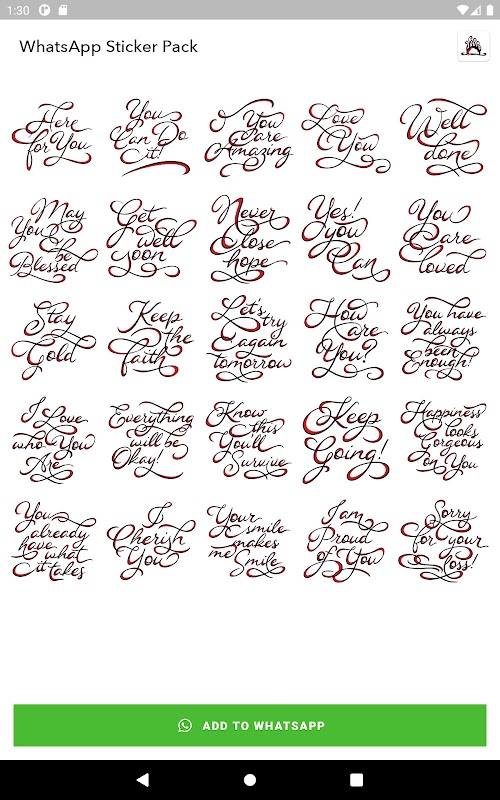 1:30
WhatsApp Sticker Pack
Here
for You
You
Can Do
it!
You
are
Amazing
Love
You
Well
done
May
You
be
Blessed
Get
well
soon
Never
Close
hope
Yes!
you
Can
You
are
loved
Stay
Gold
Keep
the
faith
Let's
try
again
tomorrow
How
are
You?
You have
always
been
Enough!
I Love
who You
Are
Everything
will be
Okay!
Know
this
You'll
Survive
Keep
Going!
Happiness
looks
Gorgeous
on You
You
already
have what
it takes
I
Cherish
You
Your
smile
makes
me Smile
I am
Proud
of You
Sorry
for your
loss!
ADD TO WHATSAPP